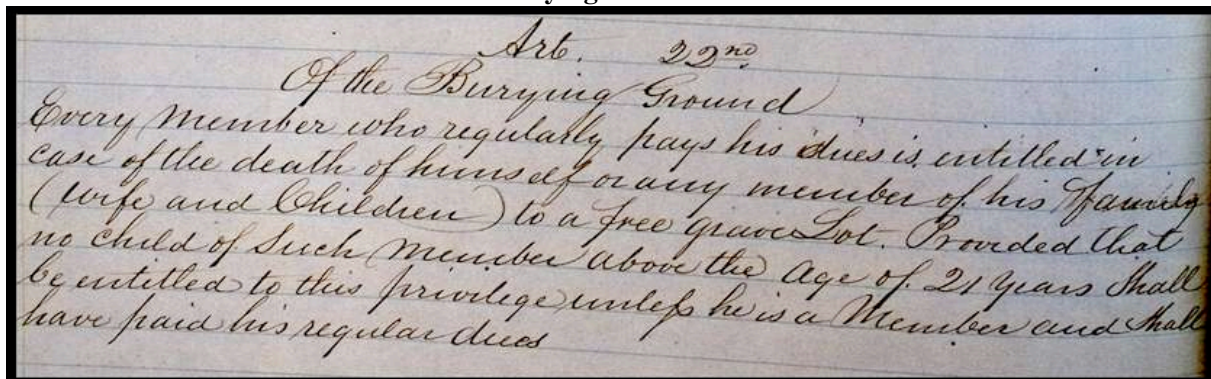 Art. 22nd
Of the Burying Ground
Every Member who regularly pays his dues is entitled in
case of the death of himself or any member of his family
(wife and Children) to a free grave Lot. Provided that
no child of Such Member above the Age of 21 years Shall
be entitled to this privilege unless he is a Member and Shall
have paid his regular dues